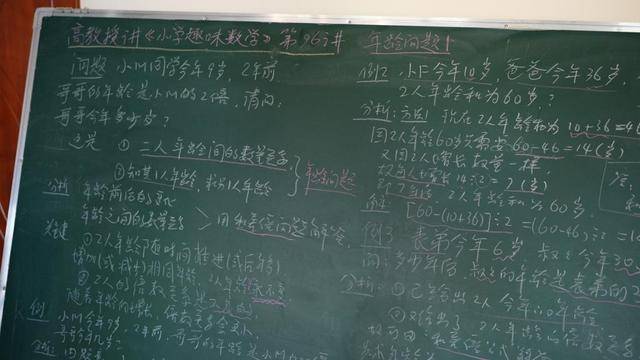 高教授讲《小学趣味数学》第96讲 年龄问题1
问题 小M同学今年9岁, 2年前
哥哥的年龄是小M的2倍, 请问:
哥哥今年多少岁?
这是 ① 二人年龄间的数量关系
② 知某人年龄 求另1人年龄
年龄问题
分析 年龄前后的变化
年龄之间的数量关系
用和差倍问题解答
关键 ① 2人年龄随时间推进(或后移)
增加(或减小)相同年龄, 2人年龄差不变
② 2人的倍数关系是变的
随着年龄的增长, 倍数会变小
例1 小M今年9岁, 2年前, 哥哥的年龄是小M的
例2 小F今年10岁, 爸爸今年36岁,
2人年龄和为60岁?
分析: 方法1 现在2人年龄和为 10+36=46
因2人年龄60岁只需要 60-46=14(岁)
又因2人增长数量一样,
故每人增长 14÷2=7(岁)
即7年后, 2人年龄和为60岁.
[60-(10+36)]÷2=(60-46)÷2=1
例3 表弟今年6岁 叔叔今年30
问: 多少年后 叔叔的年龄是表弟的2
分析: ① 已给出2人今年的年龄
② 又给出了2人年龄的倍数